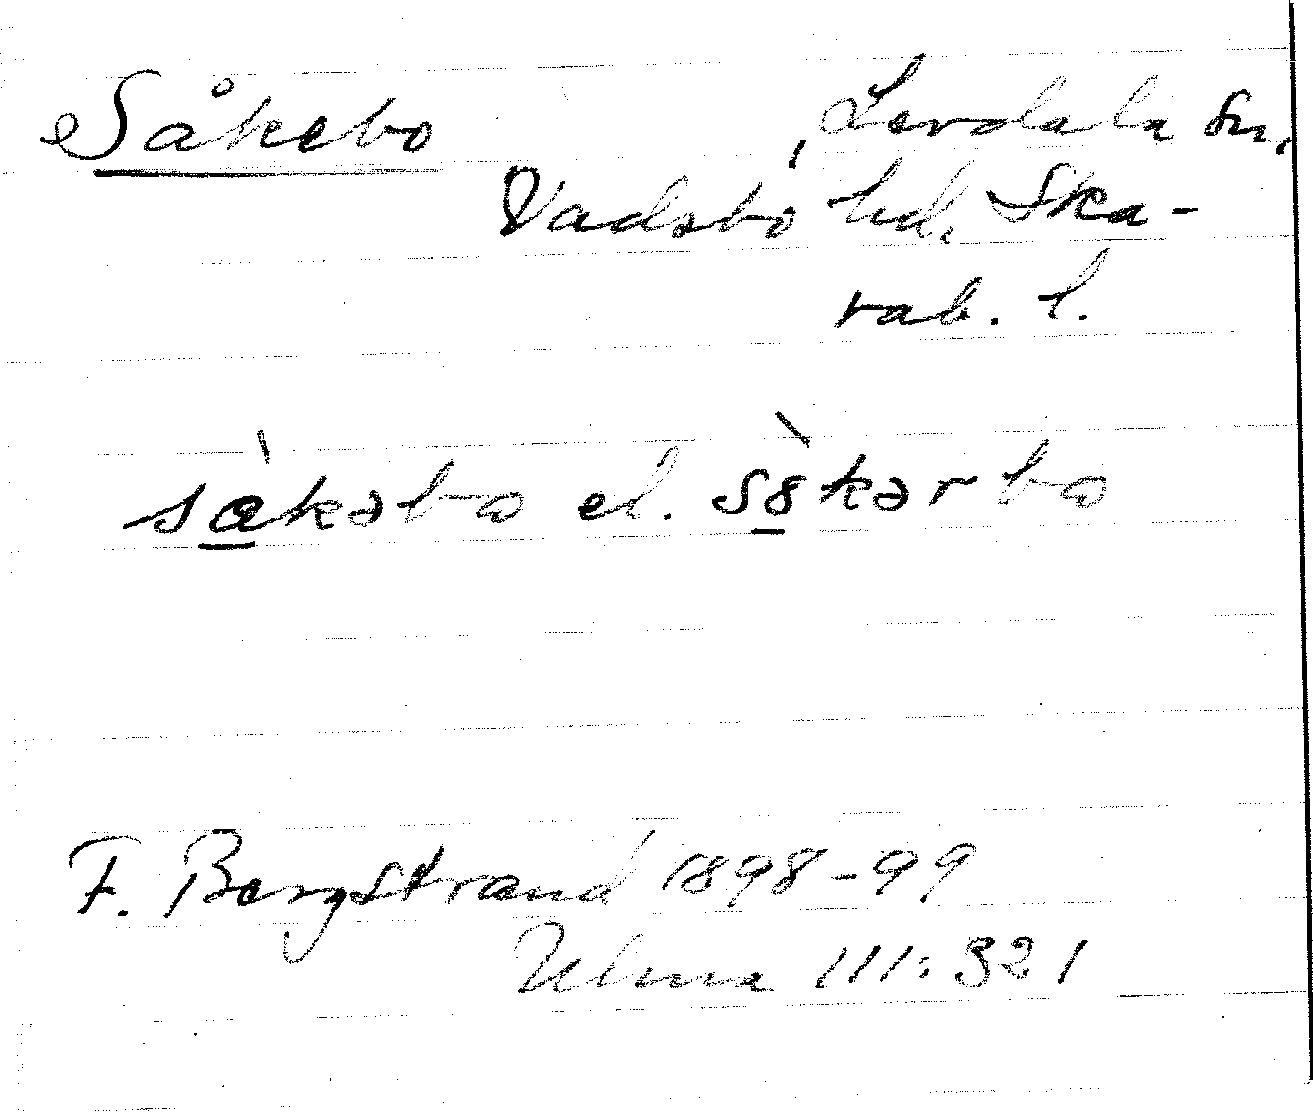 Såkebo, Lerdala sn,
Vadsbo hd. Ska-
rab. l.
sàkəbo el. sòkərbo
F. Bergstrand 1898-99
Ulma 111:321